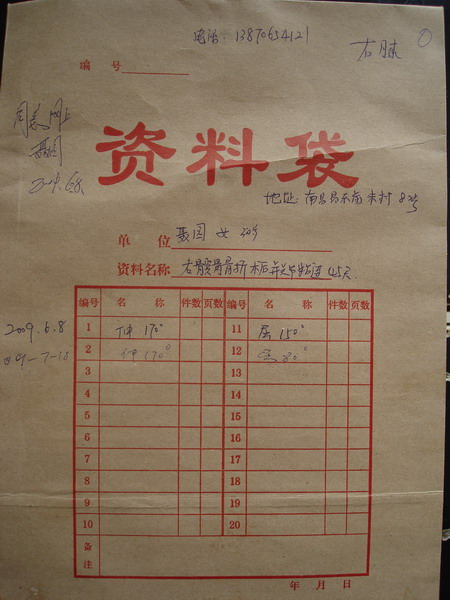 电话: 13870654121
右膝
编 号
资料袋
2009.6.8
地址: 南昌县 村 8号
单 位 聂园 女 30岁
资料名称 右髌骨骨折术后 45天
编号 名 称 件数 页数 编号 名 称 件数 页数
2009.6.8 1 伸 170° 11 屈 150°
09-7-18 2 伸 170° 12 80°
3 13
4 14
5 15
6 16
7 17
8 18
9 19
10 20
备注
年 月 日